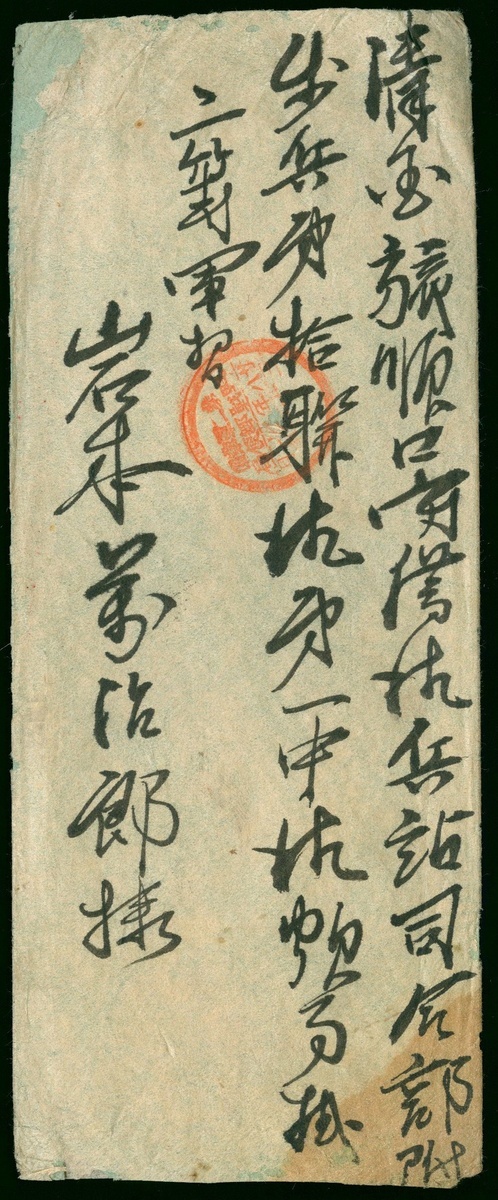 清国旅順口守備隊兵站司令部附
歩兵第拾聯隊第一中隊馬掛
二等軍曹
岩本萬治郎様